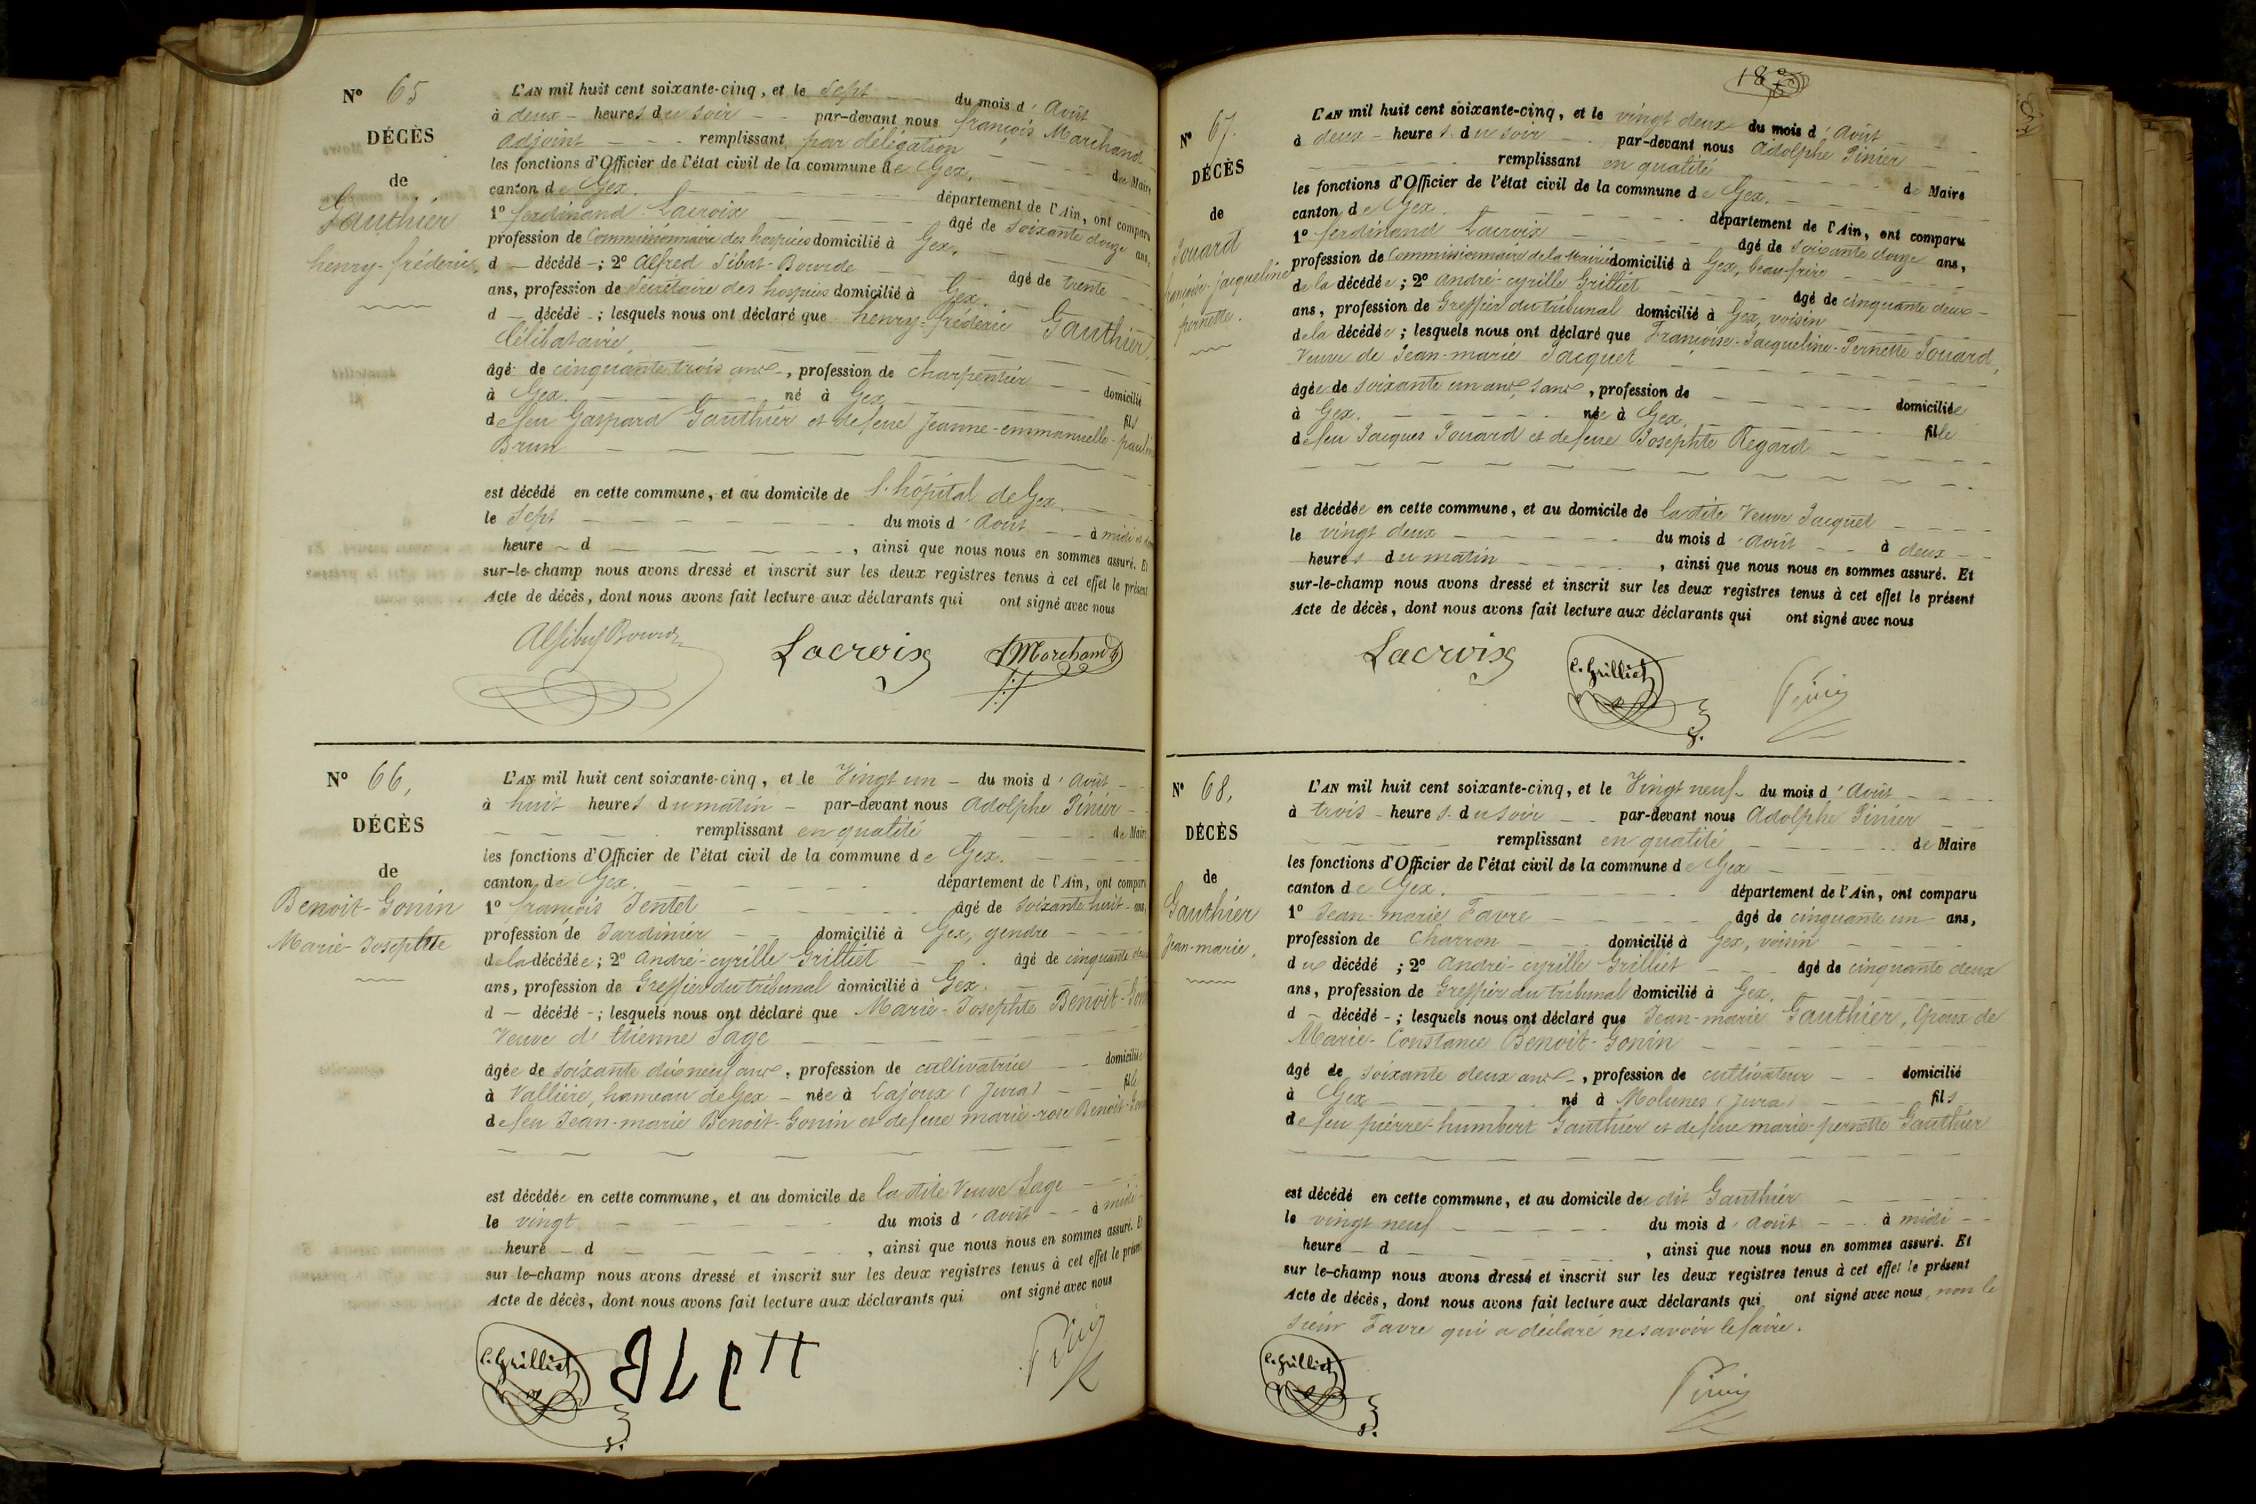 N° 65
DÉCÈS
de
Gauthier
henry-fréderic
L'AN mil huit cent soixante-cinq, et le Sept du mois d'Août
à deux heures du soir par-devant nous françois Marchand
Adjoint remplissant par délégation
les fonctions d'Officier de l'état civil de la commune de Gex, de Maire
canton de Gex. département de l'Ain, ont comparu
1° ferdinand Lacroix âgé de soixante douze ans,
profession de Commissionnaire des hospices domicilié à Gex,
d décédé ; 2° Alfred Sibut-Bourde âgé de trente
ans, profession de Secrétaire des hospices domicilié à Gex.
d décédé ; lesquels nous ont déclaré que henry-fréderic Gauthier,
Célibataire,
âgé de cinquante trois ans, profession de charpentier domicilié
à Gex né à Gex fils
de feu Gaspard Gauthier et de feue Jeanne-emmanuelle-pauline
Brun
est décédé en cette commune, et au domicile de l'hôpital de Gex.
le Sept du mois d'Août à midi et
heure d , ainsi que nous nous en sommes assuré. Et
sur-le-champ nous avons dressé et inscrit sur les deux registres tenus à cet effet le présent
Acte de décès, dont nous avons fait lecture aux déclarants qui ont signé avec nous
Lacroix
Marchand
N° 66,
DÉCÈS
de
Benoit-Gonin
Marie-Josephte
L'AN mil huit cent soixante-cinq, et le Vingt un du mois d'Août
à huit heures du matin par-devant nous Adolphe Pinier
remplissant en qualité de Maire
les fonctions d'Officier de l'état civil de la commune de Gex.
canton de Gex. département de l'Ain, ont comparu
1° françois Jentet âgé de soixante huit ans,
profession de Jardinier domicilié à Gex, gendre
de la décédée ; 2° André-cyrille Grilliet âgé de cinquante deux
ans, profession de Greffier du tribunal domicilié à Gex.
d décédé ; lesquels nous ont déclaré que Marie-Josephte Benoit-Gonin
Veuve d'étienne Sage
âgée de soixante dix neuf ans, profession de cultivatrice domiciliée
à Vallière, hameau de Gex née à Lajoux (Jura) fille
de feu Jean-marie Benoit-Gonin et de feue marie-rose Benoit-Gonin
est décédée en cette commune, et au domicile de la dite Veuve Sage
le vingt du mois d'Août à midi
heure d , ainsi que nous nous en sommes assuré. Et
sur-le-champ nous avons dressé et inscrit sur les deux registres tenus à cet effet le présent
Acte de décès, dont nous avons fait lecture aux déclarants qui ont signé avec nous
C. Grilliet
N° 67.
DÉCÈS
de
Jouard
françoise-jacqueline
pernette.
L'AN mil huit cent soixante-cinq, et le vingt deux du mois d'Août
à deux heures du soir par-devant nous Adolphe Pinier
remplissant en qualité de Maire
les fonctions d'Officier de l'état civil de la commune de Gex.
canton de Gex. département de l'Ain, ont comparu
1° ferdinand Lacroix âgé de soixante douze ans,
profession de Commissionnaire de la Mairie domicilié à Gex, beau-frère
de la décédée ; 2° André-cyrille Grilliet âgé de cinquante deux
ans, profession de Greffier du tribunal domicilié à Gex, voisin
de la décédée ; lesquels nous ont déclaré que Françoise-Jacqueline-Pernette Jouard,
Veuve de Jean-marie Jacquet
âgée de soixante un ans, sans, profession de domiciliée
à Gex. née à Gex. fille
de feu Jacques Jouard et de feue Josephte Regard
est décédée en cette commune, et au domicile de la dite Veuve Jacquet
le vingt deux du mois d'Août à deux
heures du matin , ainsi que nous nous en sommes assuré. Et
sur-le-champ nous avons dressé et inscrit sur les deux registres tenus à cet effet le présent
Acte de décès, dont nous avons fait lecture aux déclarants qui ont signé avec nous
Lacroix
C. Grilliet
N° 68,
DÉCÈS
de
Gauthier
Jean-marie,
L'AN mil huit cent soixante-cinq, et le Vingt neuf du mois d'Août
à trois heures du soir par-devant nous Adolphe Pinier
remplissant en qualité de Maire
les fonctions d'Officier de l'état civil de la commune de Gex
canton de Gex. département de l'Ain, ont comparu
1° Jean-marie Favre âgé de cinquante un ans,
profession de Charron domicilié à Gex, voisin
du décédé ; 2° André-cyrille Grilliet âgé de cinquante deux
ans, profession de Greffier du tribunal domicilié à Gex.
d décédé ; lesquels nous ont déclaré que Jean-marie Gauthier, époux de
Marie-Constance Benoit-Gonin
âgé de soixante deux ans, profession de cultivateur domicilié
à Gex né à Molunes (Jura) fils
de feu pierre-humbert Gauthier et de feue marie-pernette Gauthier
est décédé en cette commune, et au domicile du dit Gauthier
le vingt neuf du mois d'Août à midi
heure d , ainsi que nous nous en sommes assuré. Et
sur le-champ nous avons dressé et inscrit sur les deux registres tenus à cet effet le présent
Acte de décès, dont nous avons fait lecture aux déclarants qui ont signé avec nous, non le
sieur Favre qui a déclaré ne savoir le faire.
C. Grilliet